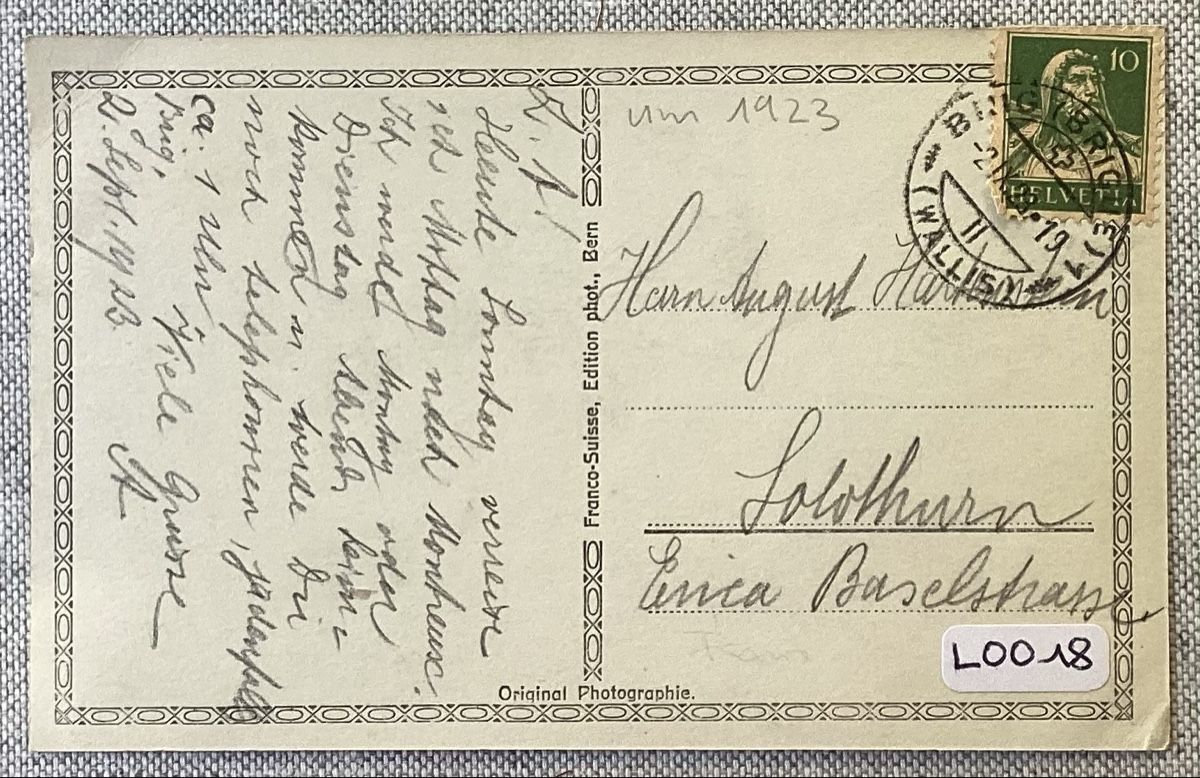 L. A.!
Heute Sonntag verreise
ich Mittag nach Montreux.
Ich werde Montag oder
Dienstag Abend heim-
kommen u. werde Dir
noch telephonieren, jedenfalls
ca. 1 Uhr Viele Grüsse
Brig,
2. Sept. 1923.
Franco-Suisse, Edition phot., Bern
Original Photographie.
um 1923
10
HELVETIA
BRIG (BRIGUE) 1
(WALLIS)
Herrn August
Solothurn
Erica Baselstrasse
L0018